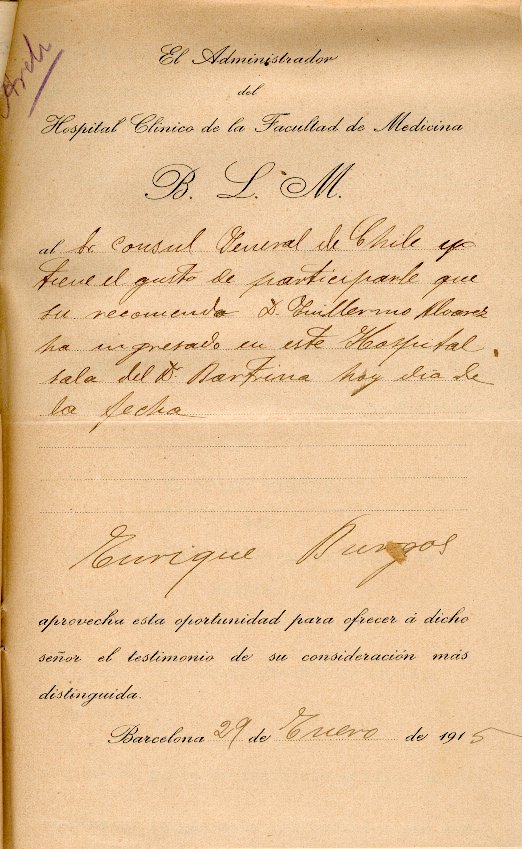 Arch
El Administrador
del
Hospital Clínico de la Facultad de Medicina
B. L. M.
al Sr consul General de Chile y
tiene el gusto de participarle que
su recomendo D. Guillermo Alvarez
ha ingresado en este Hospital
sala del Dr. Bartrina hoy dia de
la fecha
Enrique Burgos
aprovecha esta oportunidad para ofrecer á dicho
señor el testimonio de su consideración más
distinguida.
Barcelona 29 de Enero de 1915